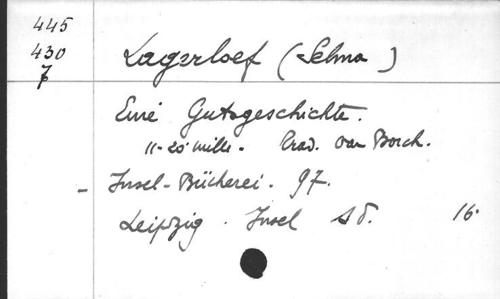 445
430
7
Lagerloef (Selma)
Eine Gutsgeschichte.
11-20 mille. Trad. von Borch.
- Insel-Bücherei. 97.
Leipzig. Insel s d. 16.